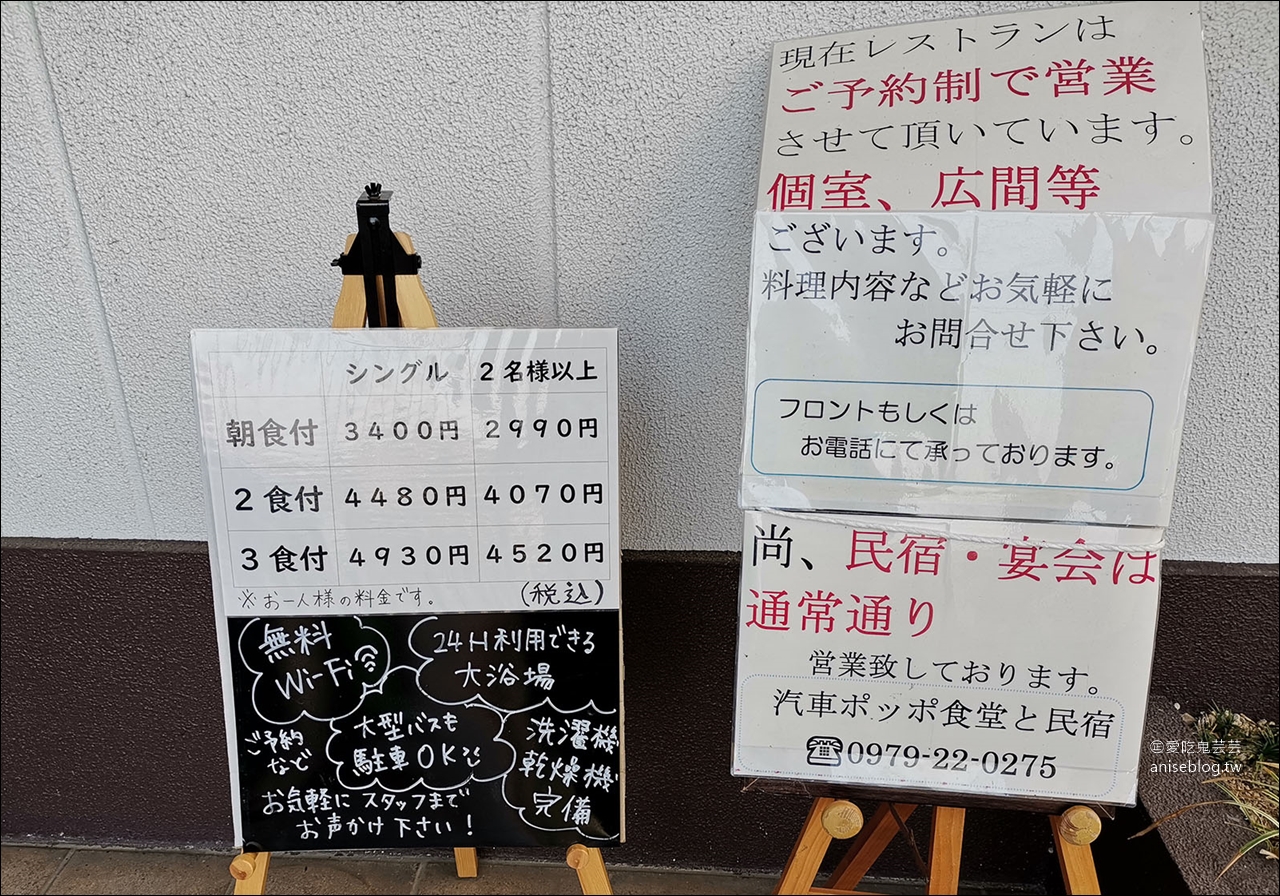 シングル 2名様以上
朝食付 3400円 2990円
2食付 4480円 4070円
3食付 4930円 4520円
※お一人様の料金です。 (税込)
無料
Wi-Fi
24H利用できる
大浴場
ご予約
など
大型バスも
駐車OK
洗濯機
乾燥機
完備
お気軽にスタッフまで
お声かけ下さい!
現在レストランは
ご予約制で営業
させて頂いています。
個室、広間等
ございます。
料理内容などお気軽に
お問合せ下さい。
フロントもしくは
お電話にて承っております。
尚、民宿・宴会は
通常通り
営業致しております。
汽車ポッポ食堂と民宿
☎0979-22-0275
愛吃鬼芸芸
aniseblog.tw